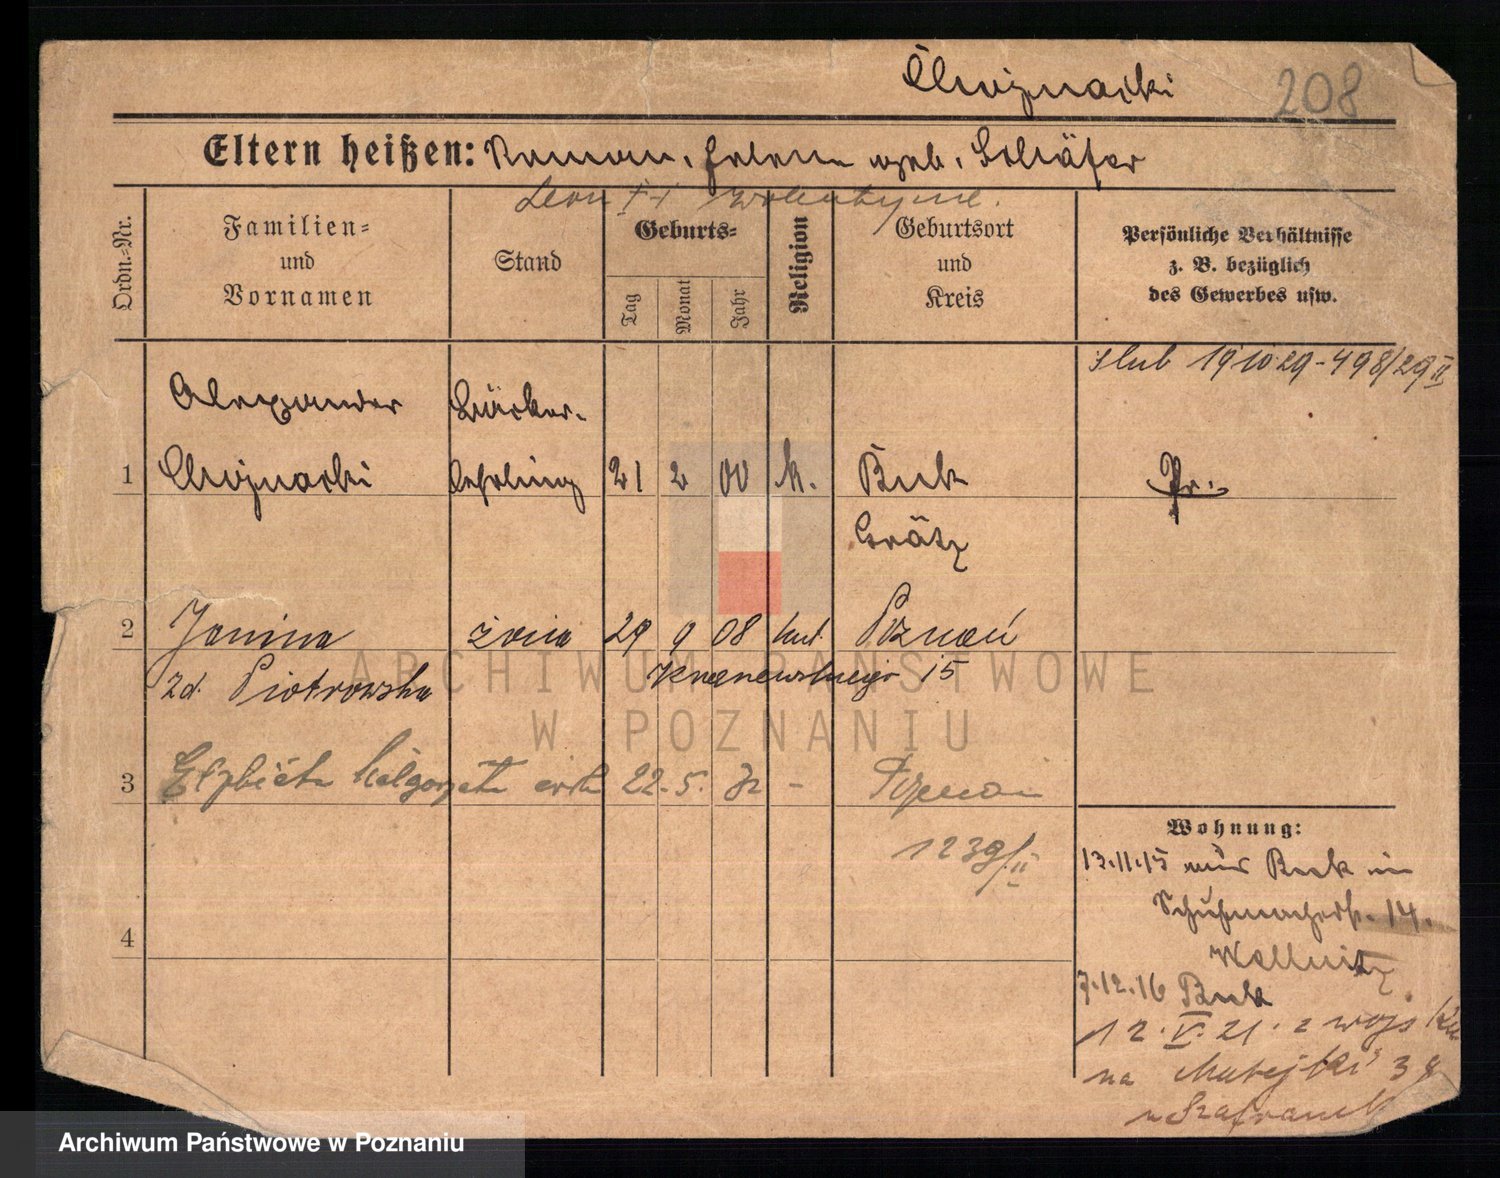 Chojnacki 208
Eltern heißen: Roman, Helene geb. Schäfer
Leon
Ordn.-Nr.
Familien-
und
Vornamen
Stand
Geburts-
Tag
Monat
Jahr
Religion
Geburtsort
und
Kreis
Persönliche Verhältnisse
z. B. bezüglich
des Gewerbes usw.
ślub 19 10 29 - 498/29 II
Alexander Bäcker-
1 Chojnacki lehrling 21 2 00 k. Buk Pr.
Grätz
2 Janina żona 29 9 08 kat. Poznań
zd. Piotrowska 15
3 Elżbieta Małgorzata 22. 5. 32 - Poznań
1239/II
4
Wohnung:
13.11.15 aus Buk in
Schuhmacherst. 14.
7.12.16 Buk
12. V. 21. z wojska
na Matejki 38
ARCHIWUM PAŃSTWOWE
W POZNANIU
Archiwum Państwowe w Poznaniu